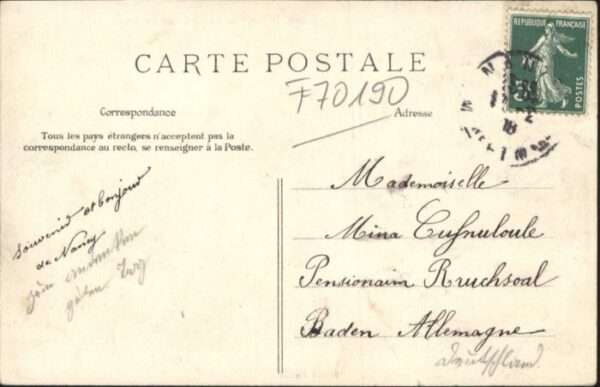 REPUBLIQUE FRANÇAISE
POSTES
CARTE POSTALE
F70190
Correspondance
Adresse
Tous les pays étrangers n'acceptent pas la
correspondance au recto, se renseigner à la Poste.
Souvenir et bonjour
de Nancy
Mademoiselle
Mina
Pensionaim Bruchsoal
Baden Allemagne
Deutschland